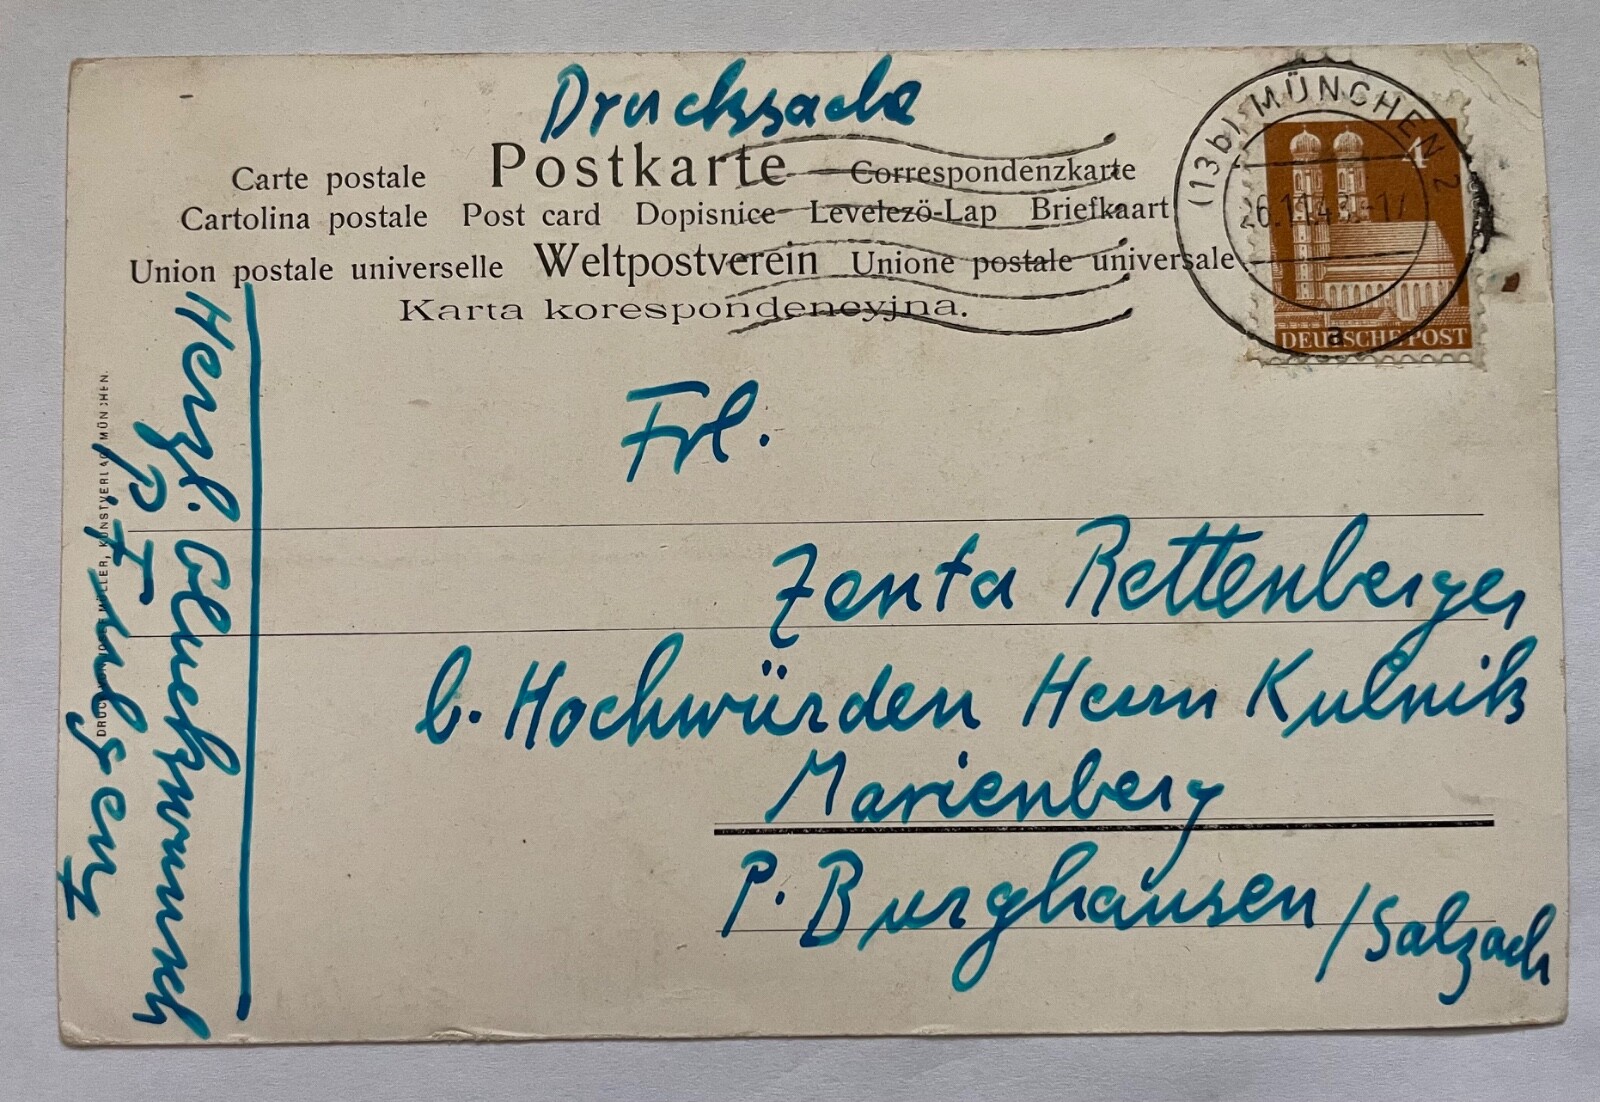 Drucksache
Carte postale Postkarte Correspondenzkarte
Cartolina postale Post card Dopisnice Levelező-Lap Briefkaart
Union postale universelle Weltpostverein Unione postale universale
Karta korespondencyjna.
(13b) MÜNCHEN 2
a
4
DEUTSCHE POST
Frl.
Zenta Rettenberger
b. Hochwürden Herrn Kulnik
Marienberg
P. Burghausen /Salzach
Herzl. Glückwunsch
DRUCK VON JOSEF MÜLLER, KUNSTVERLAG MÜNCHEN.